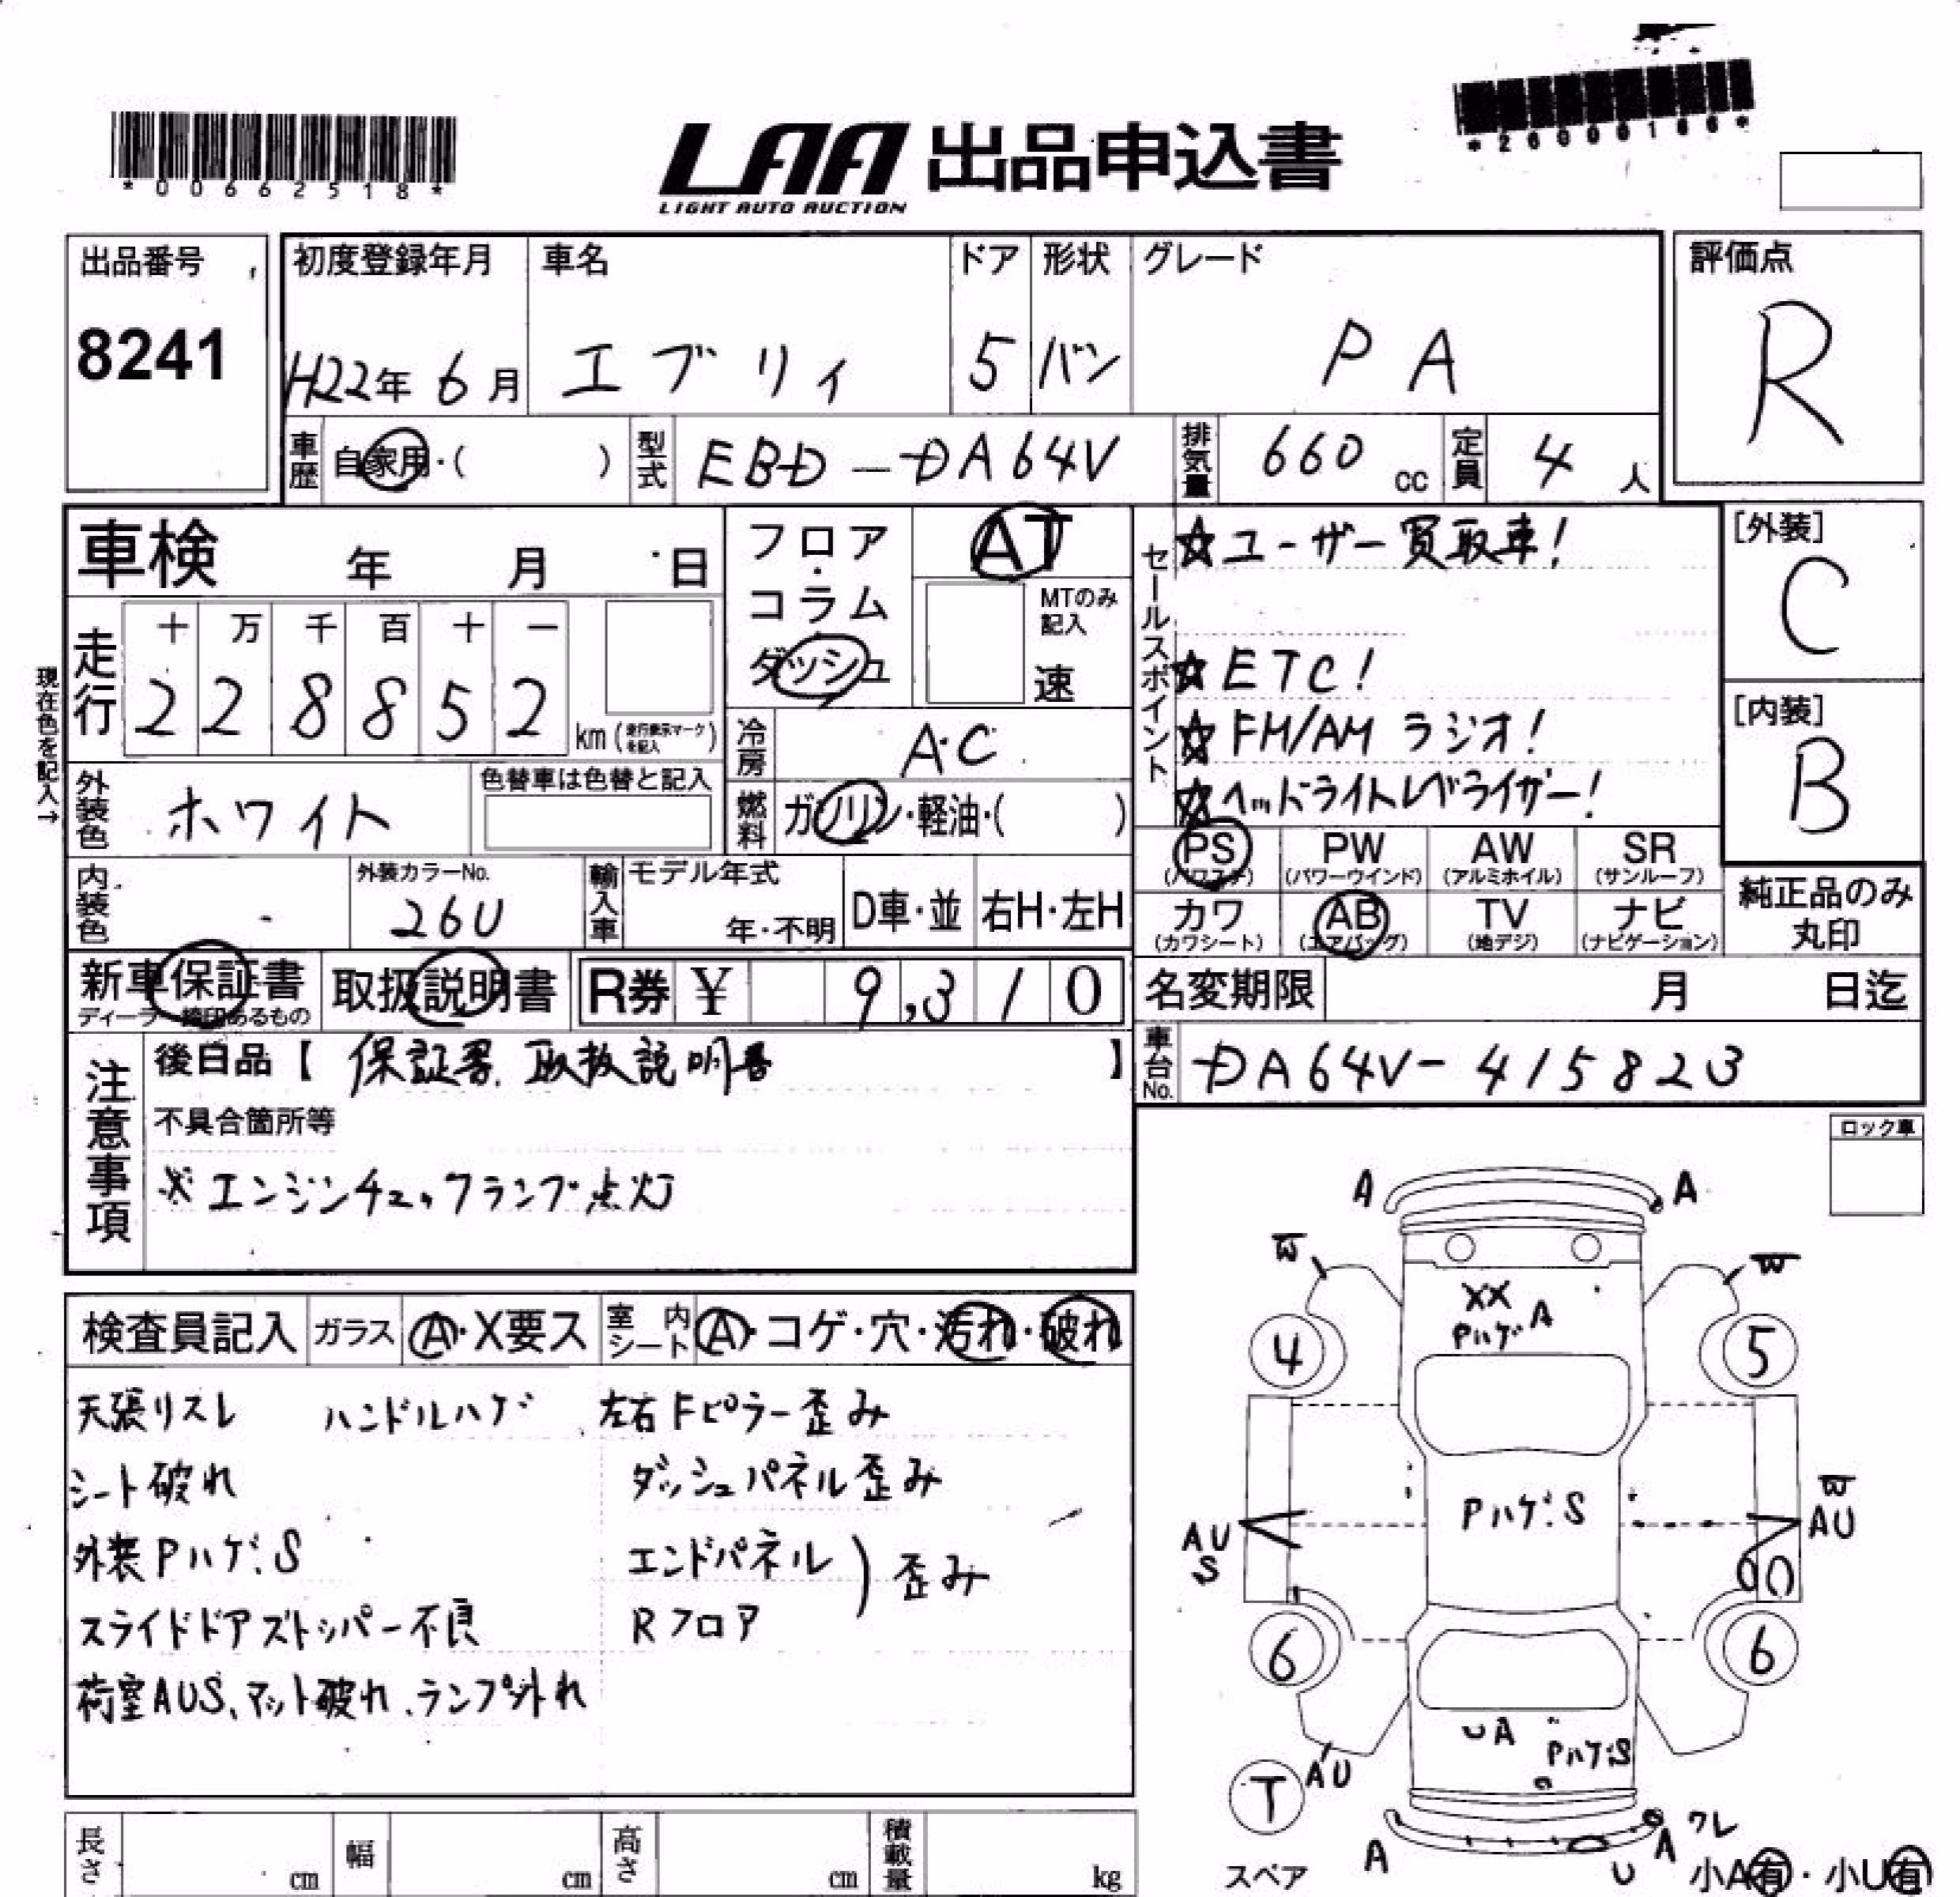 *00662518*
LAA 出品申込書
LIGHT AUTO AUCTION
*26000166*
出品番号
8241
初度登録年月
H22年 6月
車名
エブリィ
ドア
5
形状
バン
グレード
PA
評価点
R
車歴
自家用・( )
型式
EBD-DA64V
排気量
660 cc
定員
4 人
車検 年 月 日
フロア・コラム
ダッシュ
AT
MTのみ記入
速
セールスポイント
☆ユーザー買取車!
☆ETC!
☆FM/AM ラジオ!
☆ヘッドライトレベライザー!
[外装]
C
[内装]
B
現在色を記入→
走行
十 万 千 百 十 一
2 2 8 8 5 2
km (走行表示マークを記入)
冷房
AC
外装色
ホワイト
色替車は色替と記入
燃料
ガソリン・軽油・( )
PS
(パワステ)
PW
(パワーウインド)
AW
(アルミホイル)
SR
(サンルーフ)
カワ
(カワシート)
AB
(エアバッグ)
TV
(地デジ)
ナビ
(ナビゲーション)
純正品のみ
丸印
内装色
外装カラーNo.
26U
輸入車
モデル年式
年・不明
D車・並
右H・左H
新車保証書
ディーラー捺印あるもの
取扱説明書
R券 ¥ 9,310
名変期限 月 日迄
車台No.
DA64V-415823
注意事項
後日品【 保証書、取扱説明書 】
不具合箇所等
※エンジンチェックランプ点灯
ロック車
検査員記入
ガラス
A・X要ス
室内シート
A・コゲ・穴・汚れ・破れ
天張リスレ ハンドルハゲ
シート破れ
外装Pハゲ、S
スライドドアストッパー不良
荷室AUS、マット破れ、ランプ外れ
左右Fピラー歪み
ダッシュパネル歪み
エンドパネル
Rフロア
) 歪み
A A
W W
XX
Pハゲ A
4 5
Pハゲ、S
AU
S
W
AU
6 6
UA
Pハゲ、S
T
AU
スペア
A
U
A
ワレ
小A有・小U有
長さ cm
幅 cm
高さ cm
積載量 kg